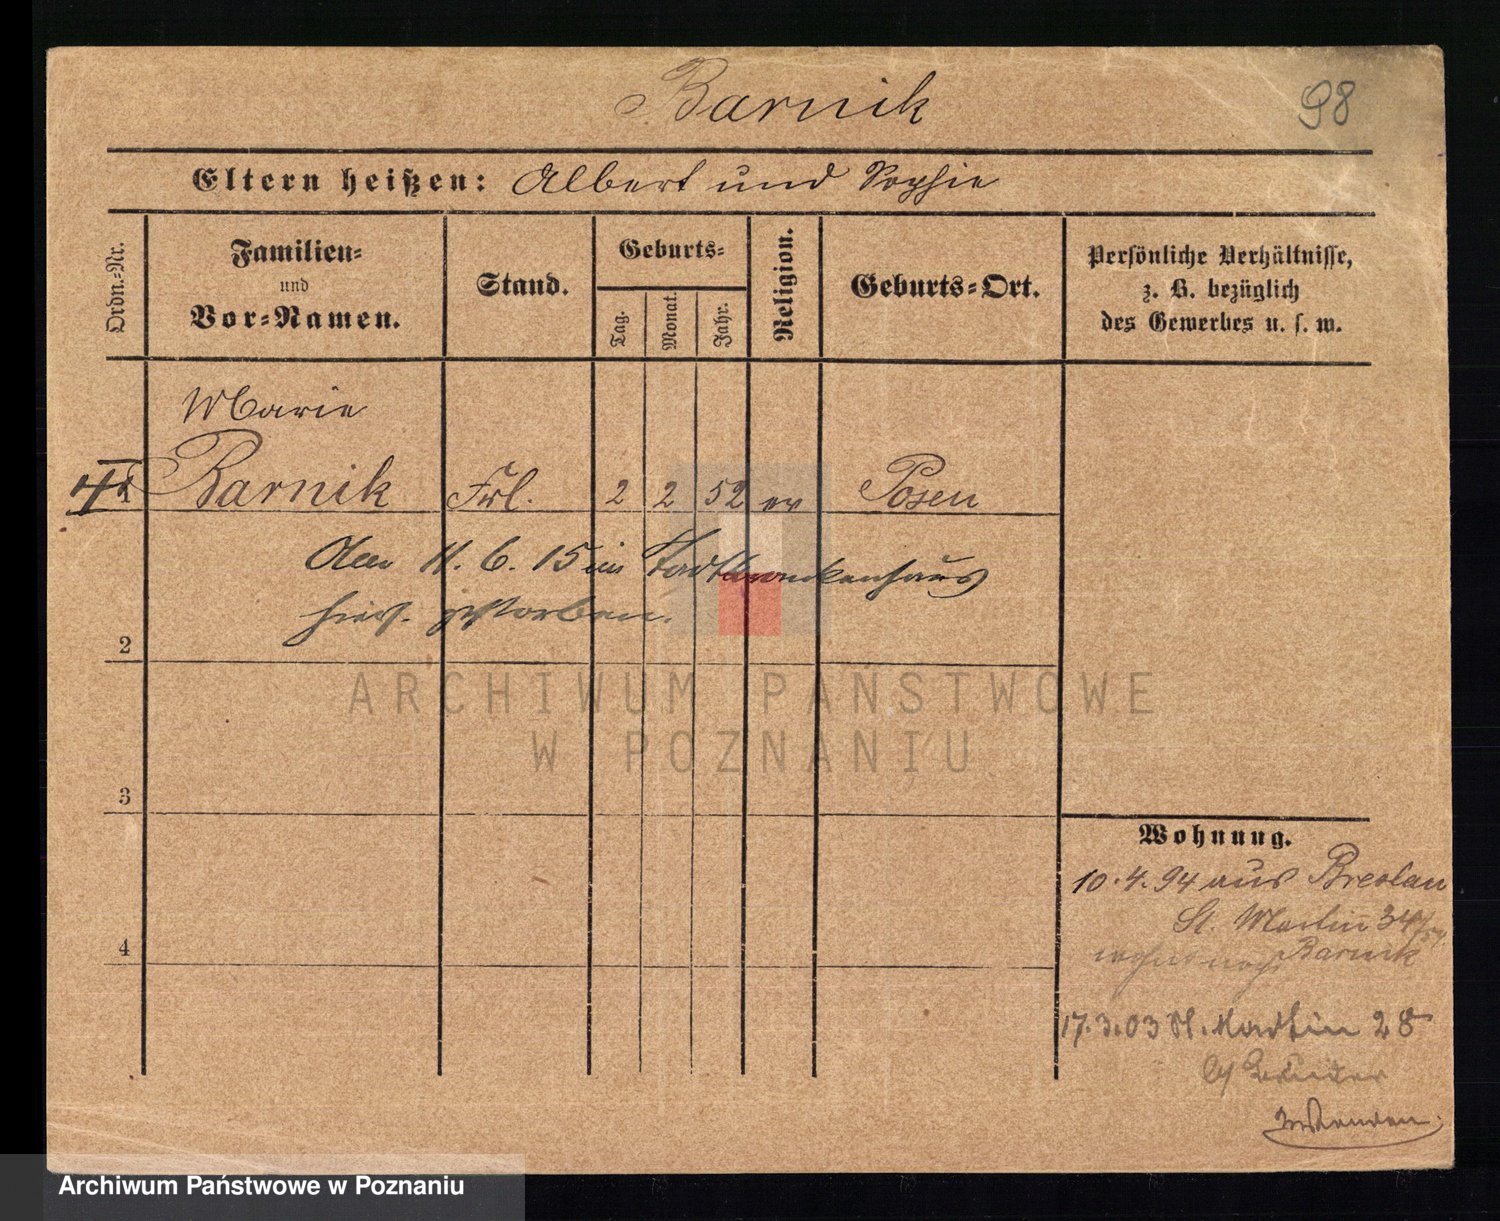 Barnik
98
Eltern heißen: Albert und Sophie
Ordn.-Nr.
Familien-
und
Vor-Namen.
Stand.
Geburts-
Tag.
Monat.
Jahr.
Religion.
Geburts-Ort.
Persönliche Verhältnisse,
z. B. bezüglich
des Gewerbes u. s. w.
Marie
1 Barnik Frl. 2 2 52 ev Posen
Am 11. 6. 15 im Stadtkrankenhaus
hies. gestorben.
2
3
4
Wohnung.
10.4.94 aus Breslau
St. Martin 34
Barnik
17.3.03 St. Martin 28
Wenden.
ARCHIWUM PAŃSTWOWE
W POZNANIU
Archiwum Państwowe w Poznaniu